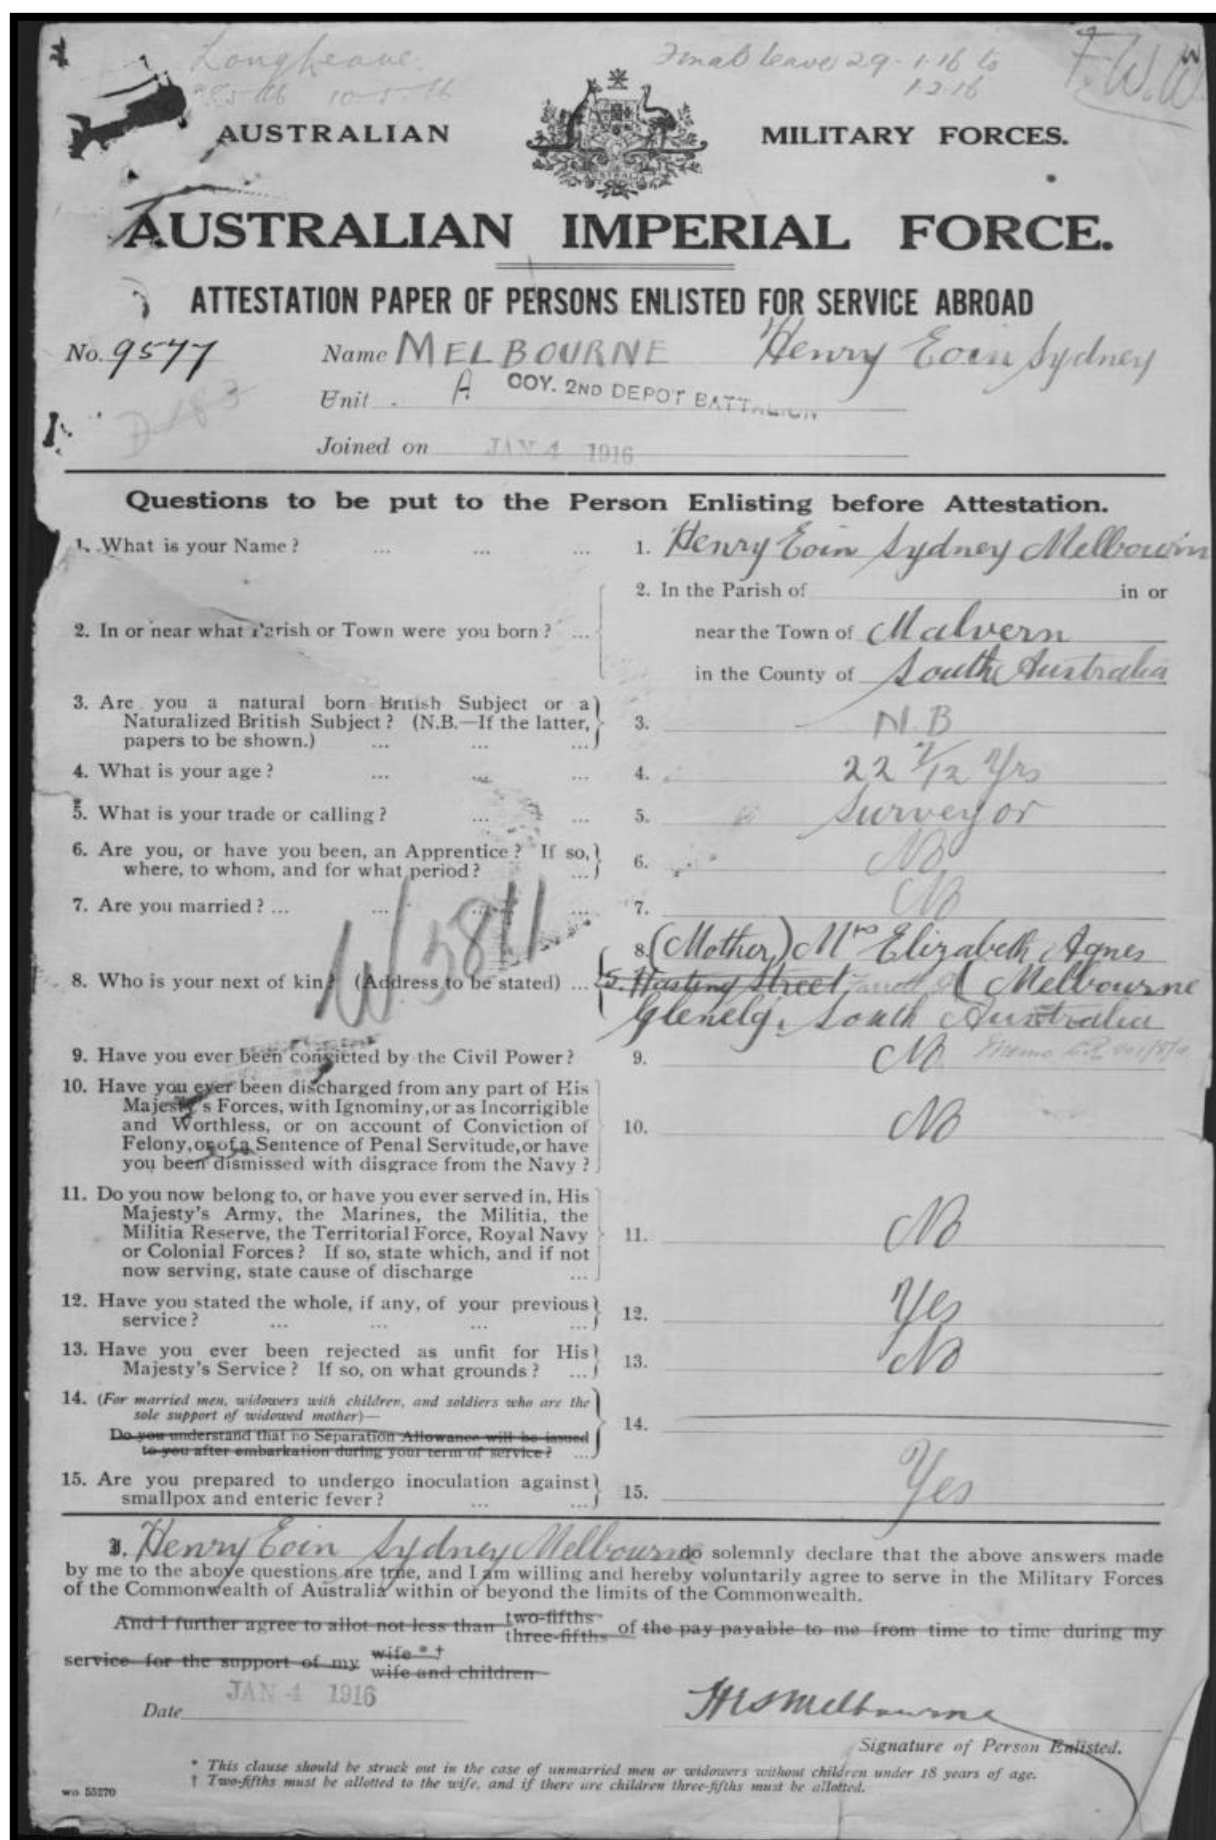 Final leave 29.1.16 to
1 2 16
F.W.W
AUSTRALIAN MILITARY FORCES.
AUSTRALIAN IMPERIAL FORCE.
ATTESTATION PAPER OF PERSONS ENLISTED FOR SERVICE ABROAD
No. 9577 Name MELBOURNE Henry Eoin Sydney
Unit A COY. 2ND DEPOT BATTALION
Joined on JAN 4 1916
Questions to be put to the Person Enlisting before Attestation.
1. What is your Name? ... ... ... 1. Henry Eoin Sydney Melbourn
2. In or near what Parish or Town were you born? ... 2. In the Parish of in or
near the Town of Malvern
in the County of South Australia
3. Are you a natural born British Subject or a
Naturalized British Subject? (N.B.—If the latter,
papers to be shown.) ... ... ... 3. N.B
4. What is your age? ... ... ... 4. 22 2/12 Yrs
5. What is your trade or calling? ... ... 5. Surveyor
6. Are you, or have you been, an Apprentice? If so,
where, to whom, and for what period? ... 6. No
7. Are you married? ... ... ... ... 7. No
W5811
8. Who is your next of kin? (Address to be stated) ... 8. (Mother) Mrs Elizabeth Agnes
Hasting Street Melbourne
Glenelg, South Australia
9. Have you ever been convicted by the Civil Power? 9. No
10. Have you ever been discharged from any part of His
Majesty's Forces, with Ignominy, or as Incorrigible
and Worthless, or on account of Conviction of
Felony, or of a Sentence of Penal Servitude, or have
you been dismissed with disgrace from the Navy? 10. No
11. Do you now belong to, or have you ever served in, His
Majesty's Army, the Marines, the Militia, the
Militia Reserve, the Territorial Force, Royal Navy
or Colonial Forces? If so, state which, and if not
now serving, state cause of discharge ... 11. No
12. Have you stated the whole, if any, of your previous
service? ... ... ... ... 12. Yes
13. Have you ever been rejected as unfit for His
Majesty's Service? If so, on what grounds? ... 13. No
14. (For married men, widowers with children, and soldiers who are the
sole support of widowed mother)—
Do you understand that no Separation Allowance will be issued
to you after embarkation during your term of service? ... 14.
15. Are you prepared to undergo inoculation against
smallpox and enteric fever? ... ... 15. Yes
I, Henry Eoin Sydney Melbourne do solemnly declare that the above answers made
by me to the above questions are true, and I am willing and hereby voluntarily agree to serve in the Military Forces
of the Commonwealth of Australia within or beyond the limits of the Commonwealth.
And I further agree to allot not less than two-fifths three-fifths of the pay payable to me from time to time during my
service for the support of my wife * † wife and children
Date JAN 4 1916
HES Melbourne
Signature of Person Enlisted.
* This clause should be struck out in the case of unmarried men or widowers without children under 18 years of age.
† Two-fifths must be allotted to the wife, and if there are children three-fifths must be allotted.
wo 55270